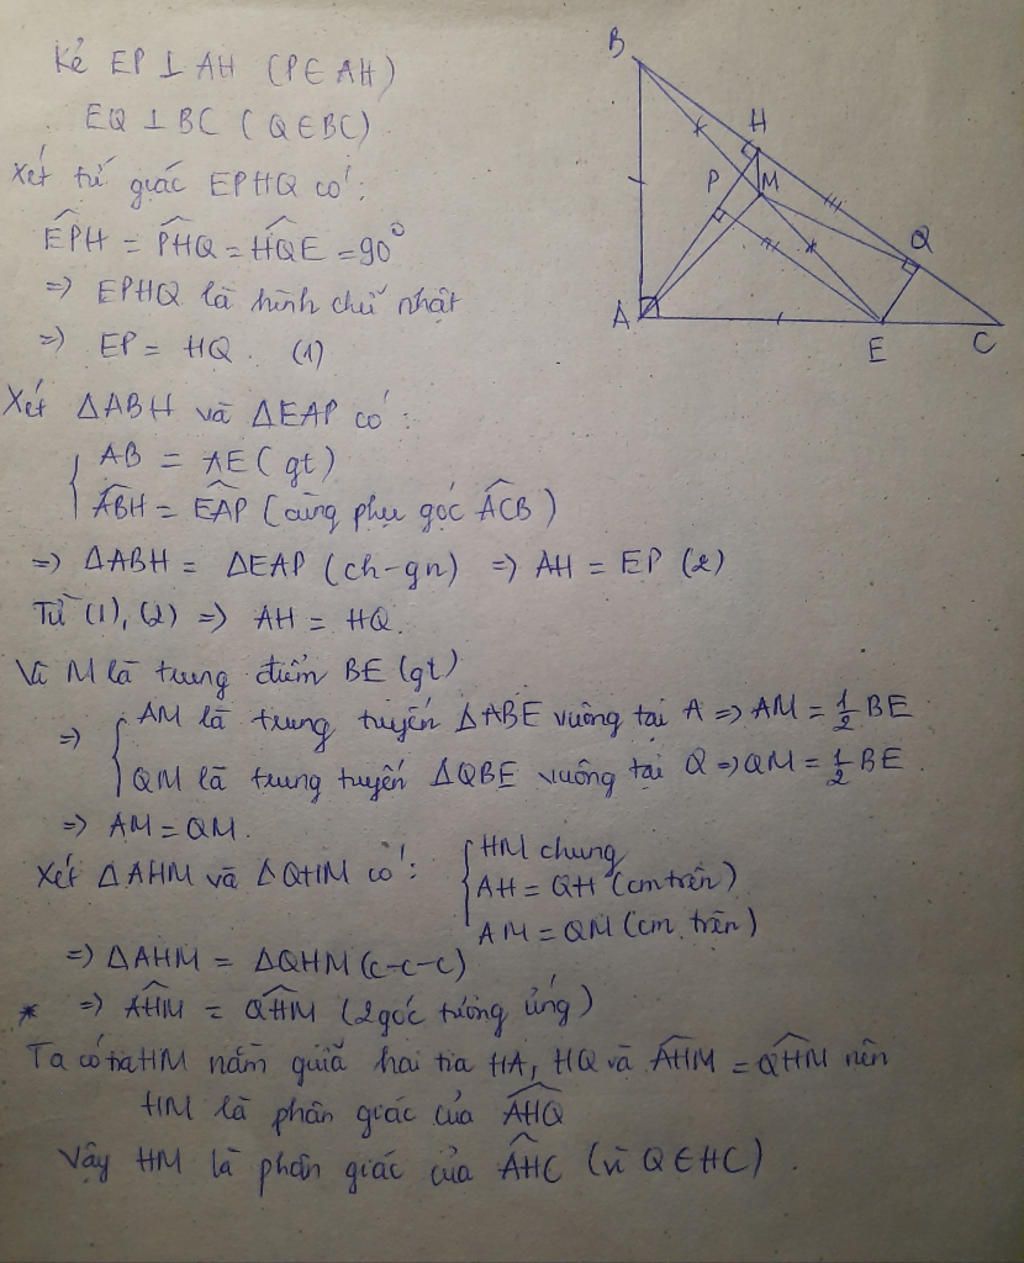 Kẻ EP ⊥ AH (P ∈ AH)
EQ ⊥ BC (Q ∈ BC)
Xét tứ giác EPHQ có:
\widehat{EPH} = \widehat{PHQ} = \widehat{HQE} = 90°
=> EPHQ là hình chữ nhật
=> EP = HQ. (1)
Xét ΔABH và ΔEAP có:
{ AB = AE (gt)
\widehat{ABH} = \widehat{EAP} (cùng phụ góc \widehat{ACB})
=> ΔABH = ΔEAP (ch-gn) => AH = EP (2)
Từ (1), (2) => AH = HQ.
Vì M là trung điểm BE (gt)
=> { AM là trung tuyến ΔABE vuông tại A => AM = 1/2 BE
QM là trung tuyến ΔQBE vuông tại Q => QM = 1/2 BE.
=> AM = QM.
Xét ΔAHM và ΔQHM có: { HM chung
AH = QH (cm trên)
AM = QM (cm trên)
=> ΔAHM = ΔQHM (c-c-c)
* => \widehat{AHM} = \widehat{QHM} (2 góc tương ứng)
Ta có tia HM nằm giữa hai tia HA, HQ và \widehat{AHM} = \widehat{QHM} nên
HM là phân giác của \widehat{AHQ}
Vậy HM là phân giác của \widehat{AHC} (vì Q ∈ HC).
B
H
P
M
Q
A
E
C